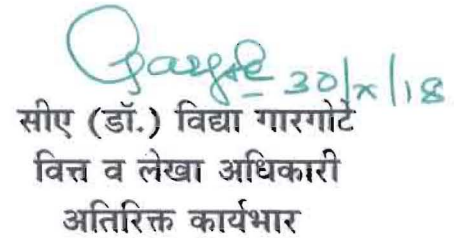 30/x/18
सीए (डॉ.) विद्या गारगोटे
वित्त व लेखा अधिकारी
अतिरिक्त कार्यभार